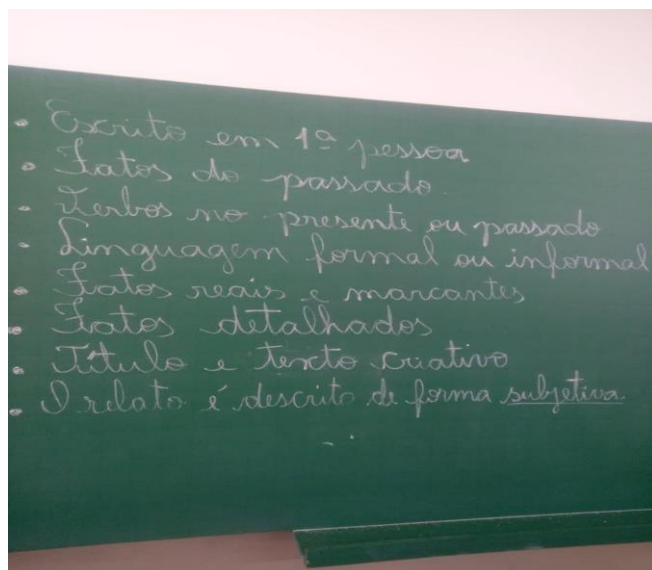 • Escrito em 1º pessoa
• Fatos do passado.
• Verbos no presente ou passado
• Linguagem formal ou informal
• Fatos reais e marcantes
• Fatos detalhados
• Título e texto criativo
• O relato é descrito de forma subjetiva.